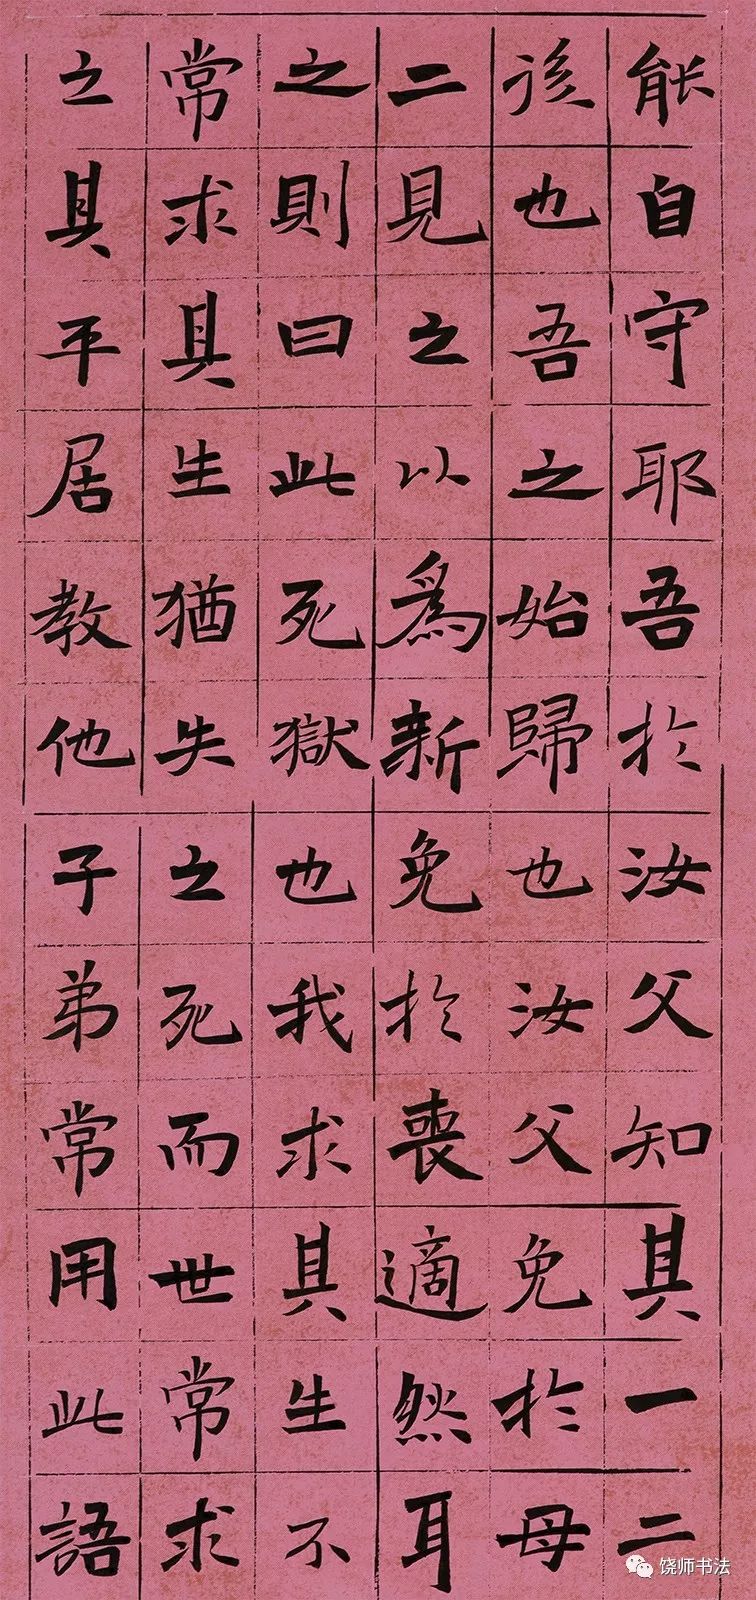 能自守耶吾於汝父知其一二
後也吾之始歸也汝父免於母
二見之以爲新免於喪適然耳
之則曰此死獄也我求其生不
常求其生猶失之死而世常求
之其平居教他子弟常用此語
饶师书法